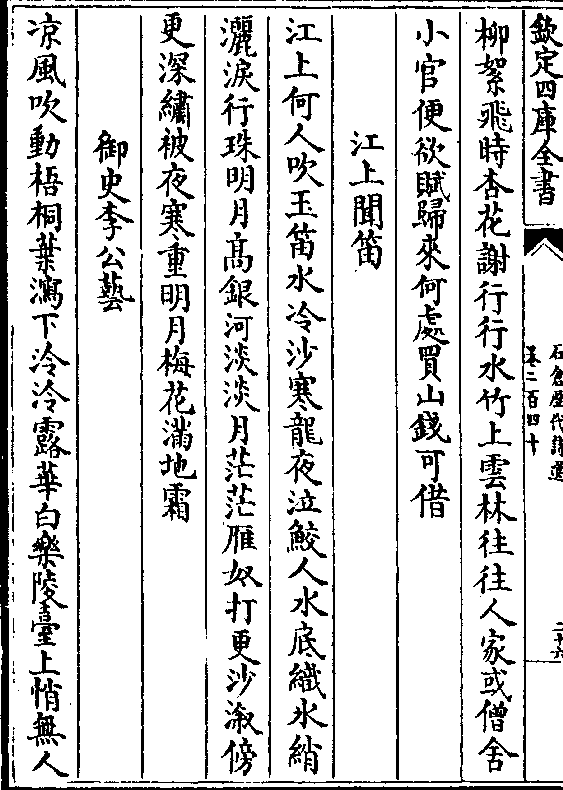 欽定四庫全書
石倉歷代詩選
卷二百四十
二十六
柳絮飛時杏花謝行行水竹上雲林往往人家或僧舍
小官便欲賦歸來何處買山錢可借
江上聞笛
江上何人吹玉笛水冷沙寒龍夜泣鮫人水底織氷綃
灑淚行珠明月高銀河淡淡月茫茫雁奴打更沙溆傍
更深繡被夜寒重明月梅花滿地霜
御史李公藝
凉風吹動梧桐葉瀉下泠泠露華白樂陵臺上悄無人